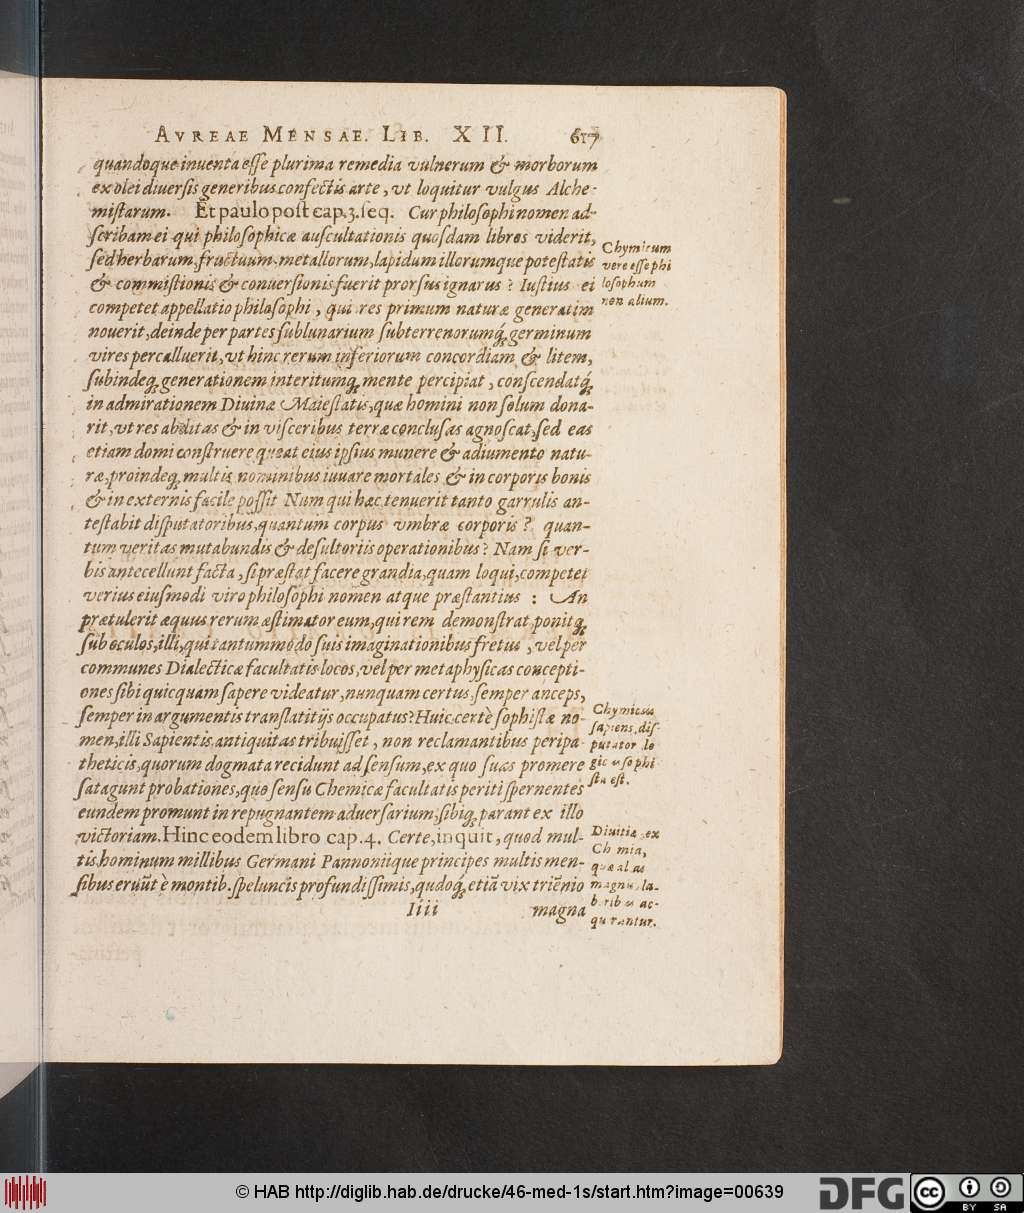 AVREAE MENSAE. LIB. XII. 617
quandoque inuenta esse plurima remedia vulnerum & morborum
ex olei diuersis generibus confectis arte, vt loquitur vulgus Alche-
mistarum. Et paulo post cap. 3. seq. Cur philosophi nomen ad-
scribam ei qui philosophicæ auscultationis quosdam libros viderit,
sed herbarum, fructuum, metallorum, lapidum illorumque potestatis
& commistionis & conuersionis fuerit prorsus ignarus? Iustius ei
competet appellatio philosophi, qui res primum naturæ generatim
nouerit, deinde per partes sublunarium subterrenorumq́; germinum
vires percalluerit, vt hinc rerum inferiorum concordiam & litem,
subindeq́; generationem interitumq́; mente percipiat, conscendatq́;
in admirationem Diuinæ Maiestatis, quæ homini non solum dona-
rit, vt res abditas & in visceribus terræ conclusas agnoscat, sed eas
etiam domi construere queat eius ipsius munere & adiumento natu-
ræ, proindeq́; multis nominibus iuuare mortales & in corporis bonis
& in externis facile possit Num qui hæc tenuerit tanto garrulis an-
testabit disputatoribus, quantum corpus vmbræ corporis? quan-
tum veritas mutabundis & desultoriis operationibus? Nam si ver-
bis antecellunt facta, si præstat facere grandia, quam loqui, competet
verius eiusmodi viro philosophi nomen atque præstantius: An
prætulerit æquus rerum æstimator eum, qui rem demonstrat, ponitq́;
sub oculos, illi, qui tantummodo suis imaginationibus fretus, vel per
communes Dialecticæ facultatis locos, vel per metaphysicas concepti-
ones sibi quicquam sapere videatur, nunquam certus, semper anceps,
semper in argumentis translatitijs occupatus? Huic certè sophistæ no-
men, illi Sapientis antiquitas tribuisset, non reclamantibus peripa-
theticis, quorum dogmata recidunt ad sensum, ex quo suas promere
satagunt probationes, quo sensu Chemicæ facultatis periti spernentes
eundem promunt in repugnantem aduersarium, sibiq́; parant ex illo
victoriam. Hinc eodem libro cap. 4. Certe, inquit, quod mul-
tis hominum millibus Germani Pannoniique principes multis men-
sibus eruūt è montib. speluncis profundissimis, qudoq́; etiā vix triēnio
Iiii magna
Chymicum
vere esse phi
losophum
non alium.
Chymicus
sapiens, dis-
putator lo
gicus sophi
sta est.
Diuitiæ ex
Chimia,
quæ alias
magnis la-
boribus ac-
quirantur.
© HAB http://diglib.hab.de/drucke/46-med-1s/start.htm?image=00639
DFG
cc BY SA